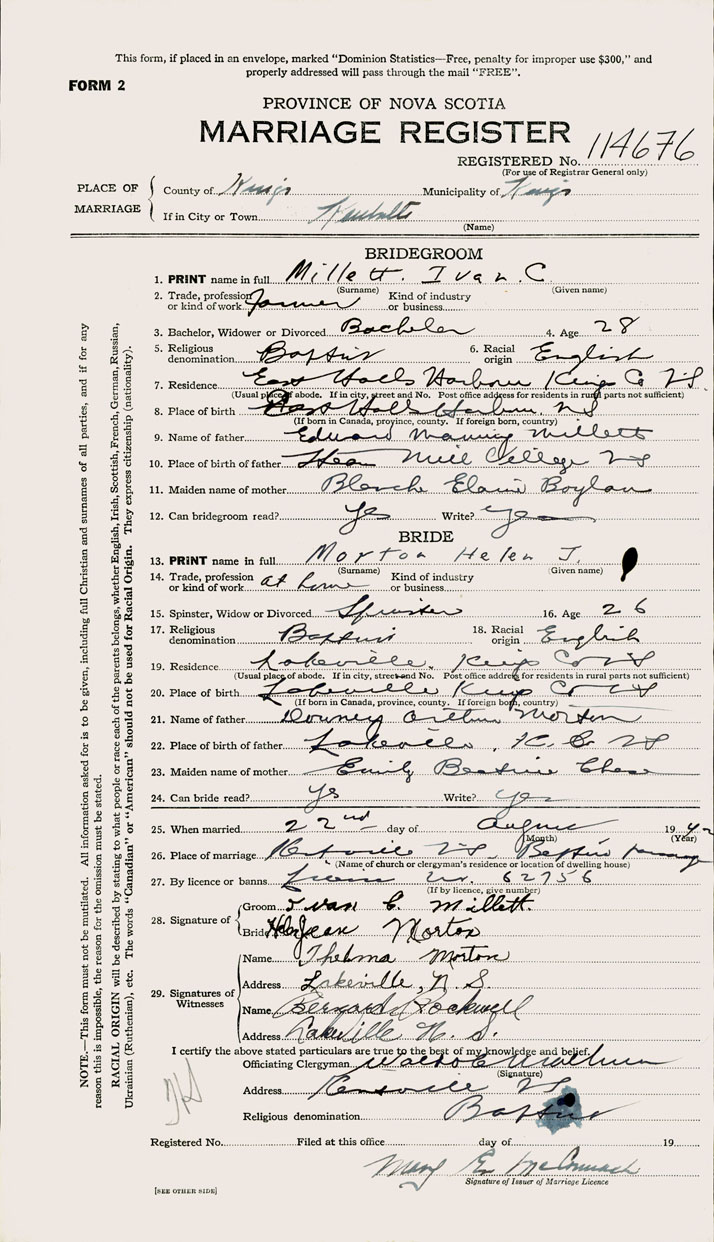 This form, if placed in an envelope, marked "Dominion Statistics—Free, penalty for improper use $300," and
properly addressed will pass through the mail "FREE".
FORM 2
PROVINCE OF NOVA SCOTIA
MARRIAGE REGISTER
REGISTERED No. 114676
(For use of Registrar General only)
PLACE OF MARRIAGE
County of Kings Municipality of Kings
If in City or Town
(Name)
BRIDEGROOM
1. PRINT name in full Millett. Ivan. C.
(Surname) (Given name)
2. Trade, profession or kind of work Farmer Kind of industry or business
3. Bachelor, Widower or Divorced Bachelor 4. Age 28
5. Religious denomination Baptist 6. Racial origin English
7. Residence East Halls Harbour Kings Co N.S.
(Usual place of abode. If in city, street and No. Post office address for residents in rural parts not sufficient)
8. Place of birth East Halls Harbour N S
(If born in Canada, province, county. If foreign born, country)
9. Name of father Edward Manning Millett
10. Place of birth of father Steam Mill Village N S
11. Maiden name of mother Blanch Boylan
12. Can bridegroom read? Yes Write? Yes
BRIDE
13. PRINT name in full Morton Helen J.
(Surname) (Given name)
14. Trade, profession or kind of work at home Kind of industry or business
15. Spinster, Widow or Divorced Spinster 16. Age 26
17. Religious denomination Baptist 18. Racial origin English
19. Residence Lakeville, Kings Co N S
(Usual place of abode. If in city, street and No. Post office address for residents in rural parts not sufficient)
20. Place of birth Lakeville Kings Co N S
(If born in Canada, province, county. If foreign born, country)
21. Name of father Arthur Morton
22. Place of birth of father Lakeville, K. Co N S
23. Maiden name of mother Emily Beatrice Chase
24. Can bride read? Yes Write? Yes
25. When married 22nd day of August 1942
(Month) (Year)
26. Place of marriage Kentville N S, Baptist Parsonage
(Name of church or clergyman's residence or location of dwelling house)
27. By licence or banns License No. 62756
(If by licence, give number)
28. Signature of
Groom Ivan C. Millett.
Bride Helen Jean Morton
29. Signatures of Witnesses
Name Thelma Morton
Address Lakeville, N. S.
Name Bernard Rockwell
Address Lakeville N. S.
I certify the above stated particulars are true to the best of my knowledge and belief.
Officiating Clergyman
(Signature)
Address Kentville N S
Religious denomination Baptist
Registered No. Filed at this office day of 19
Mary E.
Signature of Issuer of Marriage Licence
[SEE OTHER SIDE]
NOTE.—This form must not be mutilated. All information asked for is to be given, including full Christian and surnames of all parties, and if for any
reason this is impossible, the reason for the omission must be stated.
RACIAL ORIGIN will be described by stating to what people or race each of the parents belongs, whether English, Irish, Scottish, French, German, Russian,
Ukrainian (Ruthenian), etc. The words "Canadian" or "American" should not be used for Racial Origin. They express citizenship (nationality).